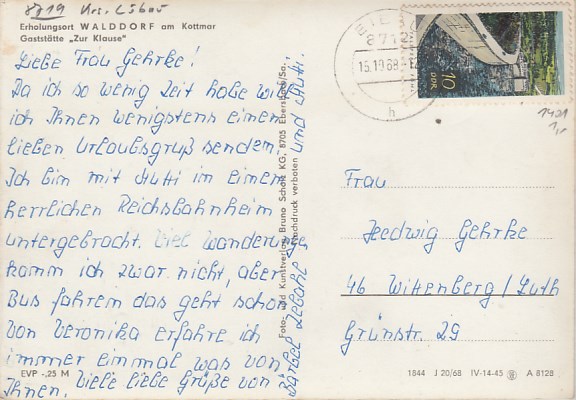 8719 Krs. Löbau
Erholungsort WALDDORF am Kottmar
Gaststätte „Zur Klause"
Liebe Frau Gehrke!
Da ich so wenig Zeit habe will
ich Ihnen wenigstens einen
lieben Urlaubsgruß senden.
Ich bin mit Mutti in einem
herrlichen Reichsbahnheim
untergebracht. Viel wandern
komm ich zwar nicht, aber
Bus fahren das geht schon
Von Veronika erfahre ich
immer einmal was von
Ihnen. Viele liebe Grüße von
Bärbel und Mutti.
EVP -,25 M
Foto- und Kunstverlag Bruno Scholz KG, 8705 Ebersbach/Sa.
Nachdruck verboten
871
15.10.68
h
10
DDR
1421
Frau
Hedwig Gehrke
46 Wittenberg/Luth
Grünstr. 29
1844 J 20/68 IV-14-45 A 8128